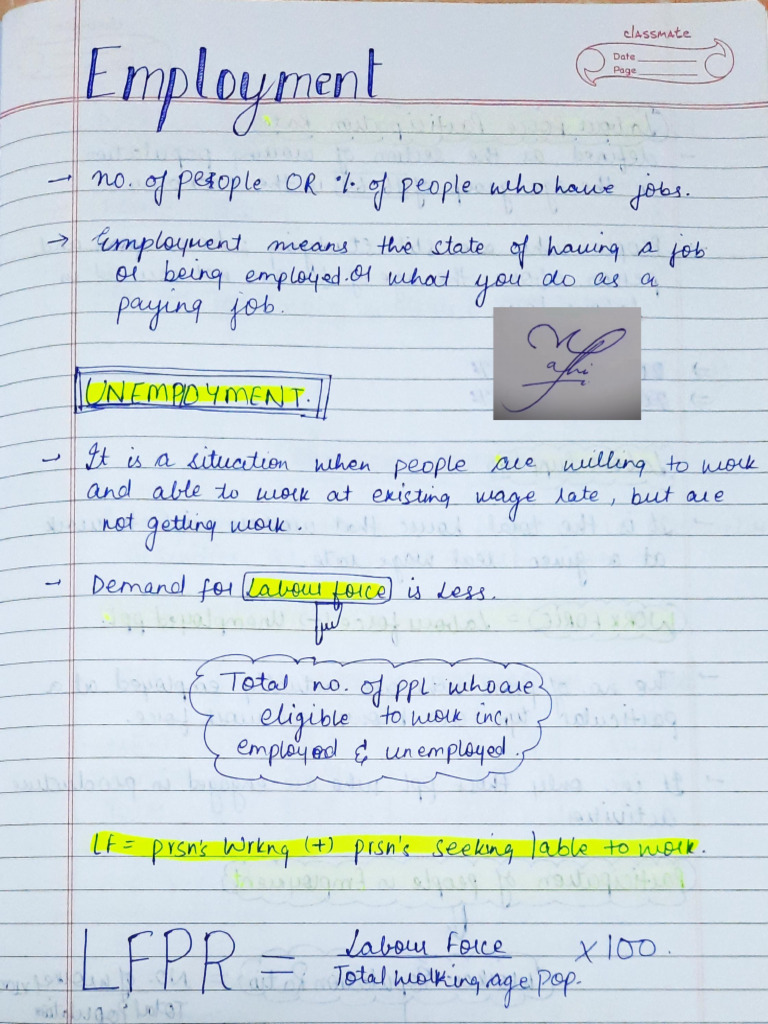 classmate
Date
Page
Employment
→ no. of people OR % of people who have jobs.
→ Employment means the state of having a job
or being employed. or what you do as a
paying job.
UNEMPOYMENT.
→ It is a situation when people are willing to work
and able to work at existing wage rate, but are
not getting work.
→ Demand for Labour force is less.
Total no. of ppl who are
eligible to work inc.
employed & unemployed.
LF = prsn's wrkng (+) prsn's seeking / able to work.
LFPR = Labour Force × 100.
Total working age pop.